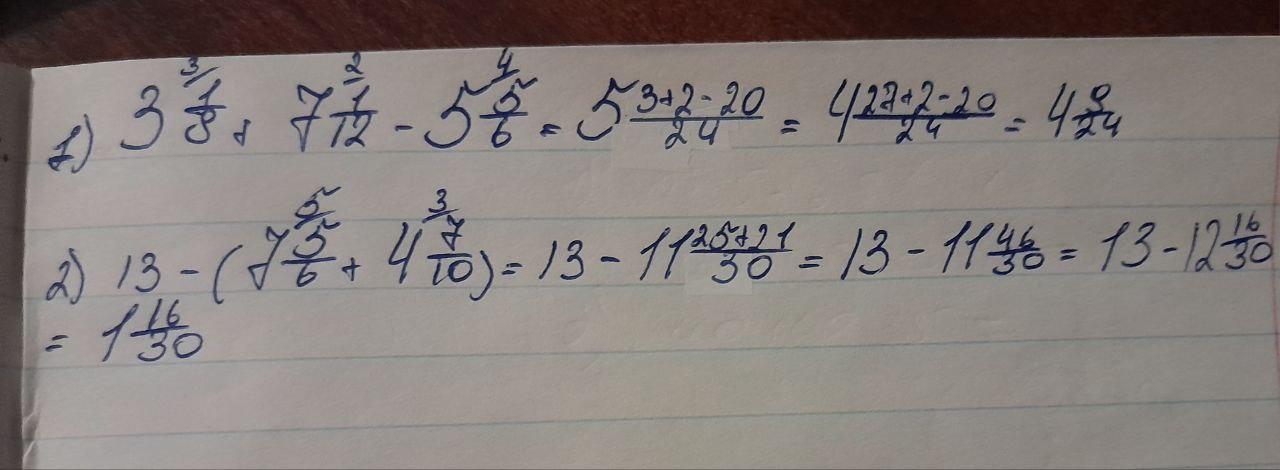 1) 3 1/8 (3/) + 7 1/12 (2/) - 5 5/6 (4/) = 5 (3+2-20)/24 = 4 (27+2-20)/24 = 4 9/24
2) 13 - (7 5/6 (5/) + 4 7/10 (3/)) = 13 - 11 (25+21)/30 = 13 - 11 46/30 = 13 - 12 16/30
= 1 16/30